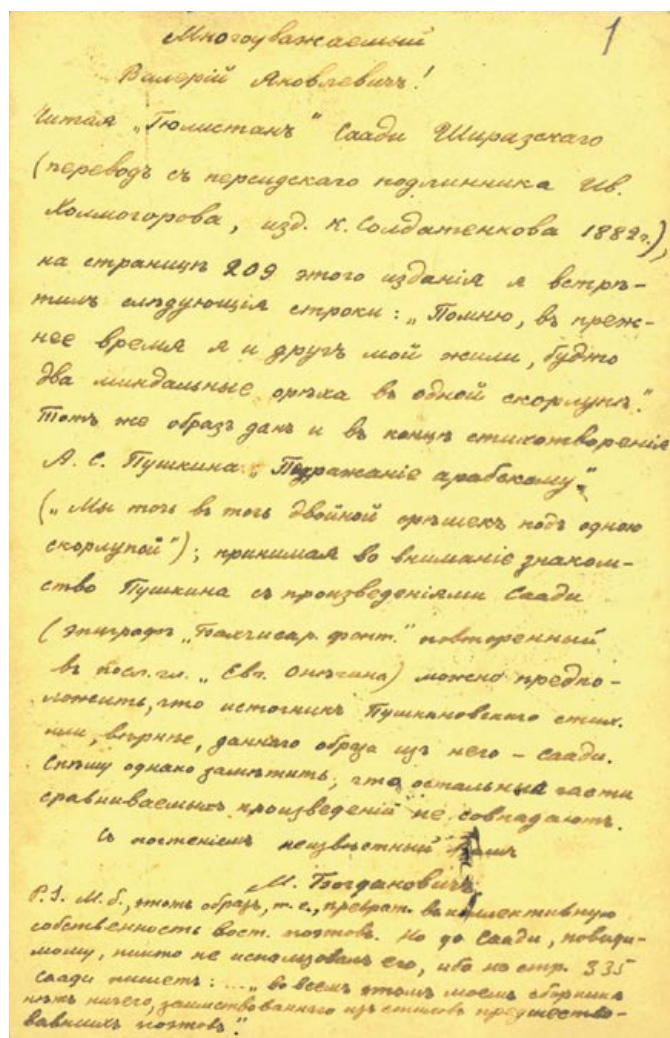 1
Многоуважаемый
Валерій Яковлевичъ!
Читая „Гюлистанъ" Саади Ширазскаго
(переводъ съ персидскаго подлинника Ив.
Холмогорова, изд. К. Солдатенкова 1882 г.),
на страницѣ 209 этого изданія я встрѣ-
тилъ слѣдующія строки: „Помню, въ преж-
нее время я и другъ мой жили, будто
два миндальные орѣха въ одной скорлупѣ."
Тотъ же образъ данъ и въ концѣ стихотворенія
А. С. Пушкина „Подражаніе арабскому"
(„Мы точь въ точь двойной орѣшекъ подъ одною
скорлупой"); принимая во вниманіе знаком-
ство Пушкина съ произведеніями Саади
(эпиграфъ „Бахчисар. фонт." повторенный
въ посл. гл. „Евг. Онѣгина) можно предпо-
ложить, что источникъ Пушкиновскаго стих.
или, вѣрнѣе, даннаго образа изъ него – Саади.
Спѣшу однако замѣтить, что остальныя части
сравниваемыхъ произведеній не совпадаютъ.
Съ почтеніемъ неизвѣстный Вамъ
М. Богдановичъ
P. S. М. б., этотъ образъ, т. с., преврат. въ коллективную
собственность вост. поэтовъ. Но до Саади, повиди-
мому, никто не использовалъ его, ибо на стр. 335
Саади пишетъ: ... „во всемъ этомъ моемъ сборникѣ
нѣтъ ничего, заимствованнаго изъ стиховъ предшество-
вавшихъ поэтовъ."